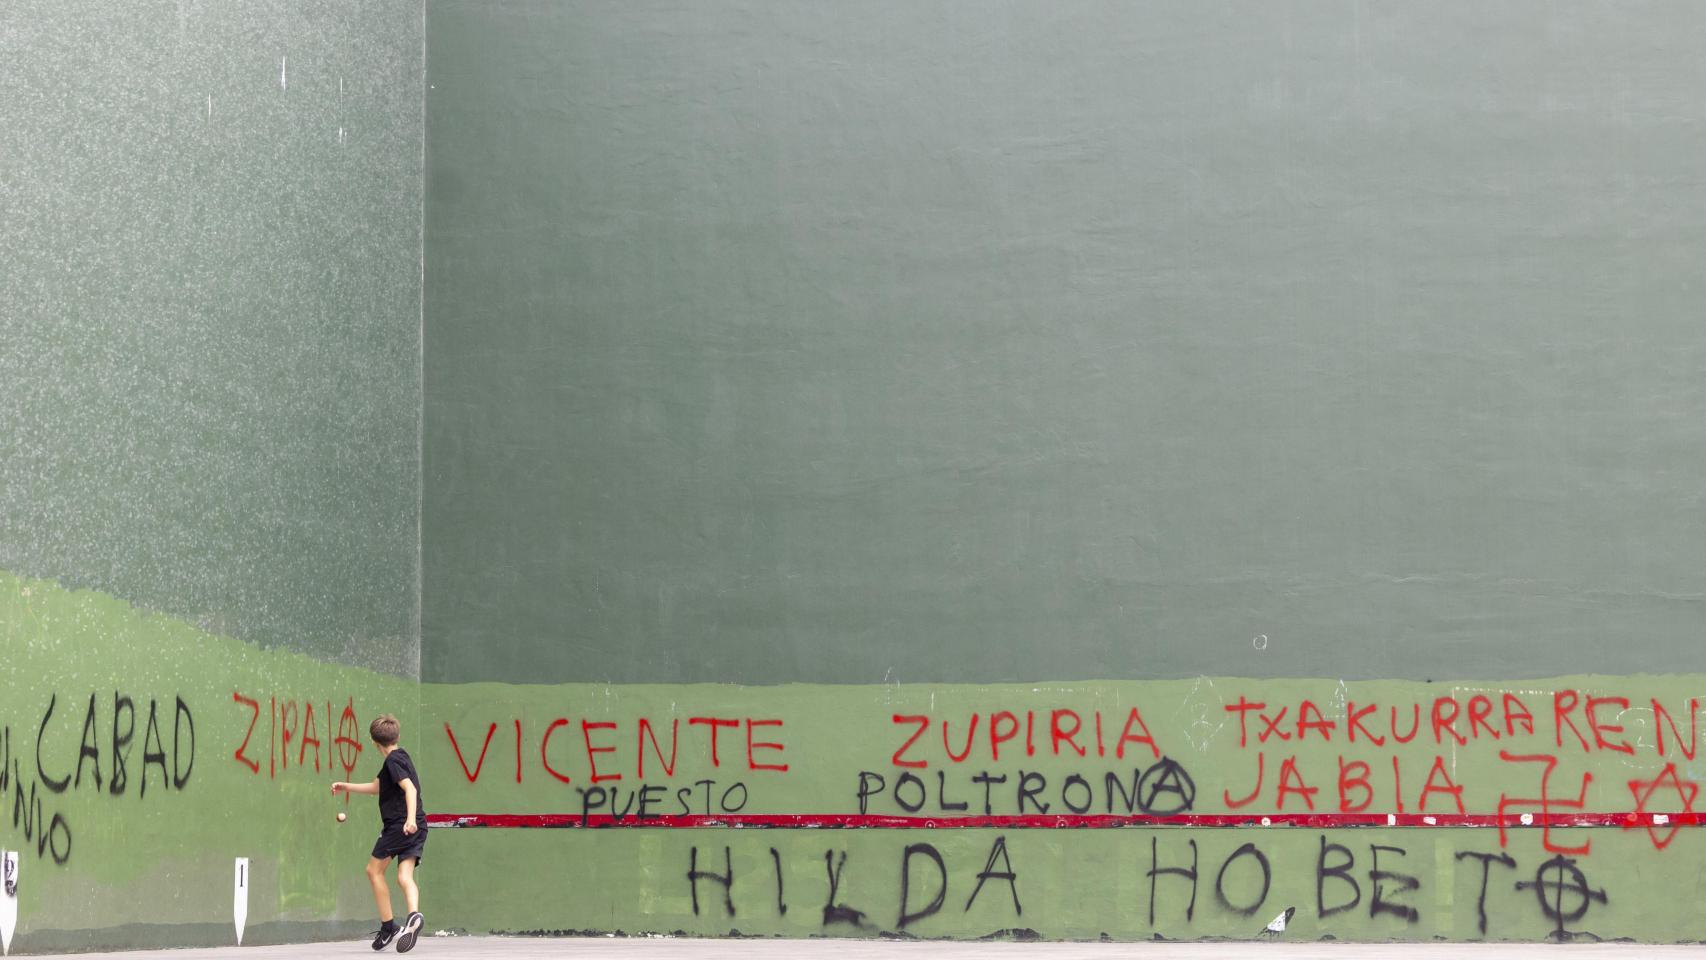 CABAD
NLO
ZIPAIO
VICENTE ZUPIRIA TXAKURRAREN
PUESTO POLTRONA JABIA
HILDA HOBETO
2
1